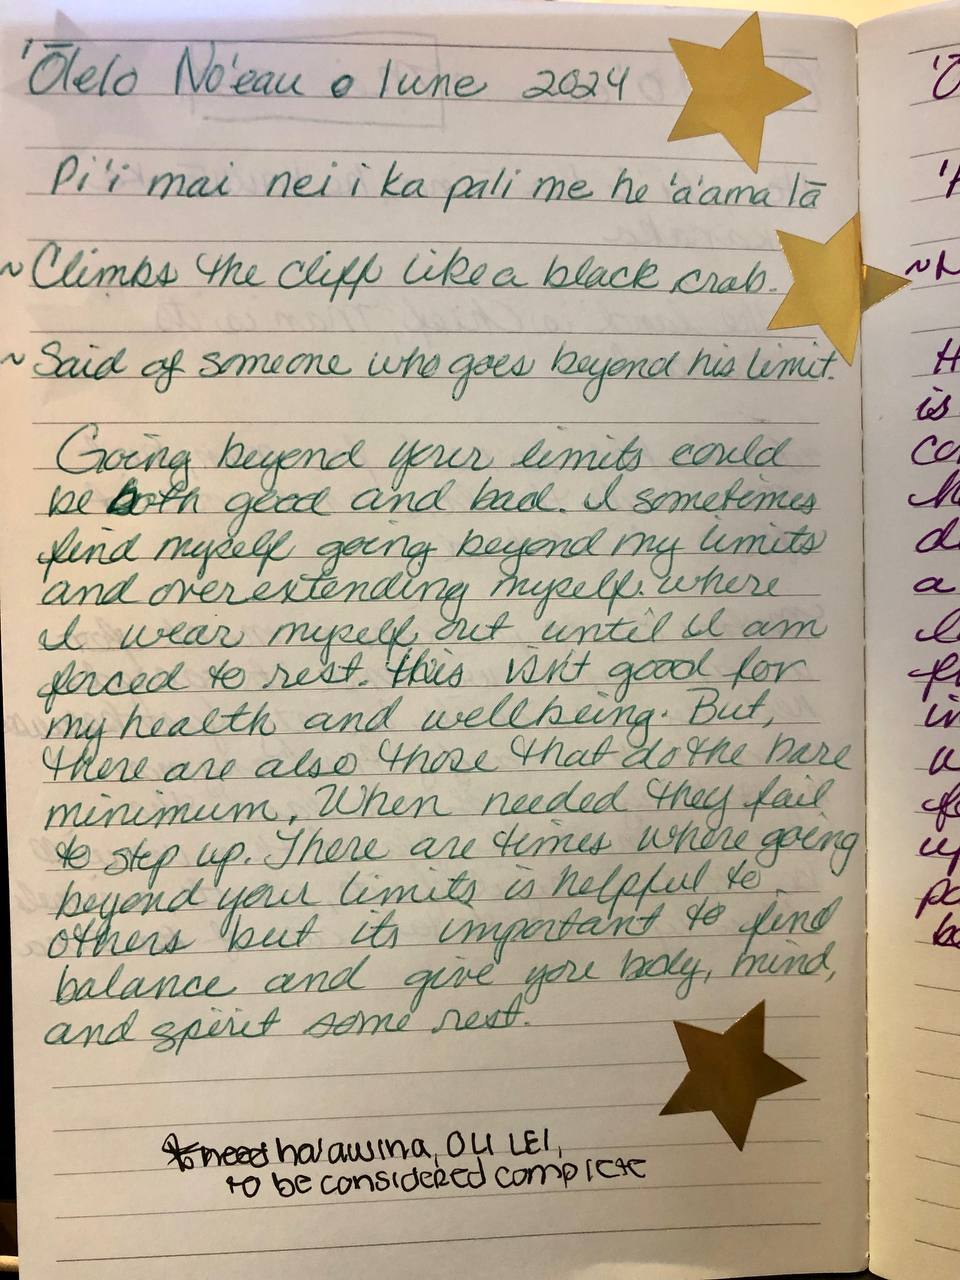 'Ōlelo No'eau o Iune 2024
Pi'i mai nei i ka pali me he 'a'ama lā
~ Climbs the cliff like a black crab.
~ Said of someone who goes beyond his limit.
Going beyond your limits could
be both good and bad. I sometimes
find myself going beyond my limits
and overextending myself. where
I wear myself out until I am
forced to rest. this isn't good for
my health and wellbeing. But,
there are also those that do the bare
minimum, When needed they fail
to step up. There are times where going
beyond your limits is helpful to
others but its important to find
balance and give your body, mind,
and spirit some rest.
need ha'awina, OLI LEI,
to be considered complete
is
a